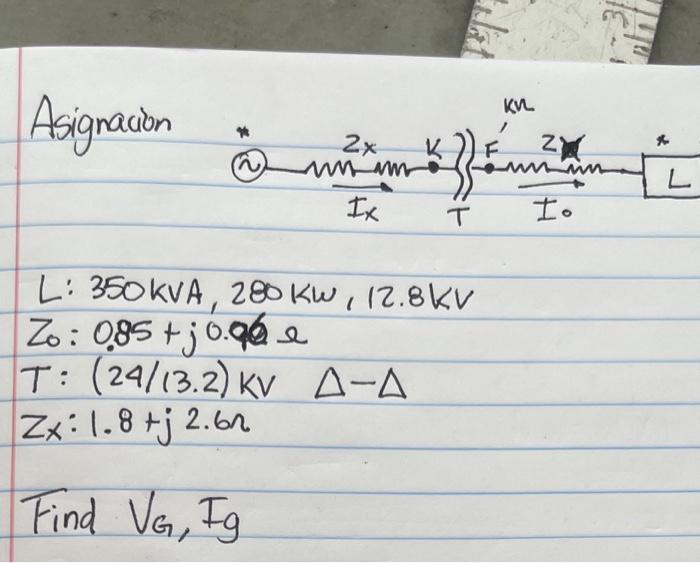 Asignación
KVL
* Zx K F Z *
Ix T Io L
L: 350KVA, 280 KW, 12.8KV
Zo: 0.85 + j0.96 Ω
T: (24/13.2) KV Δ-Δ
Zx: 1.8 + j 2.6Ω
Find VG, Ig